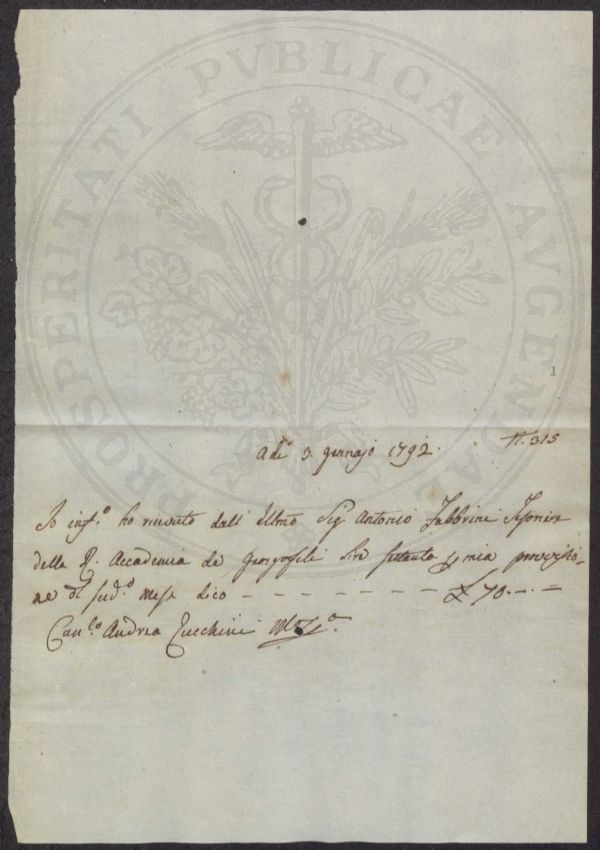 PROSPERITATI PVBLICAE AVGENDAE
1
Adì 3. gennajo 1792.
N. 315
Io inf.o ho ricevuto dall' Illmo Sig Antonio Fabbrini
della R. Accademia de Georgofili Lire settanta p mia provvisio-
ne di sud.o Mese dico - - - - - - - £ 70.-.-
Can.co Andrea Zucchini